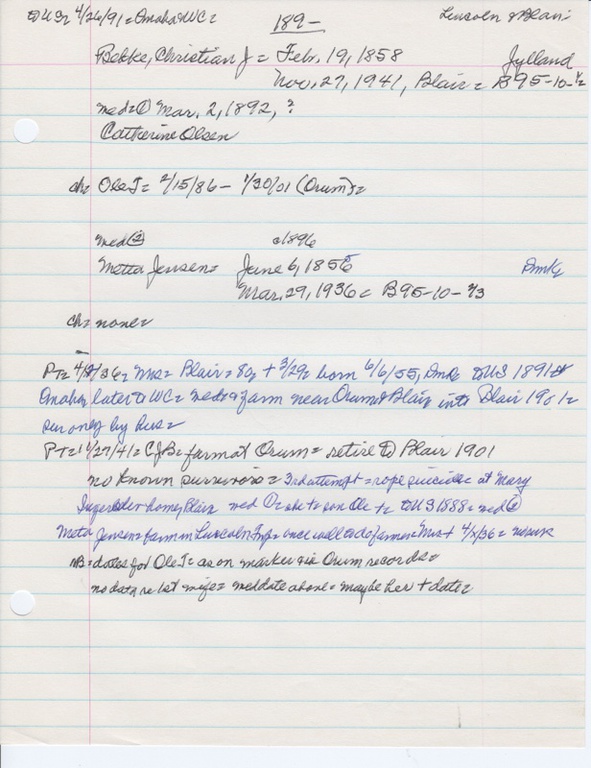 to US= 4/26/91= Omaha & WC= 189- Lincoln & Blair=
Bekke, Christian J = Feb. 19, 1858 Jylland
Nov. 27, 1941, Blair = B95-10-½
med= ① Mar. 2, 1892, ?
Catherine Olsen
ch= Ole J= 2/15/86 - 1/30/01 (Orum)=
med ② c1896
Metta Jensen= June 6, 1855 Dmk
Mar. 29, 1936= B95-10-2/3
ch= none=
PT= 36= Mrs= Blair= 80y + 3/29= born 6/6/55, Dmk to US 1891
Omaha, later to WC= med= farm near Orum & Blair into Blair 1901=
sur only by hus=
PT= 11/27/41= CJB= farm at Orum= retire to Blair 1901
no known survivors= 3rd attempt= rope suicide= at Mary
home, Blair med ①= son Ole + to US 1888= med ②
Meta Jensen= farm in Lincoln Twp= once well to do farmer= Mrs + 4/x/36=
NB= dates for Ole J= as on marker Orum records=
no data re 1st wife= med date above= maybe her + date=